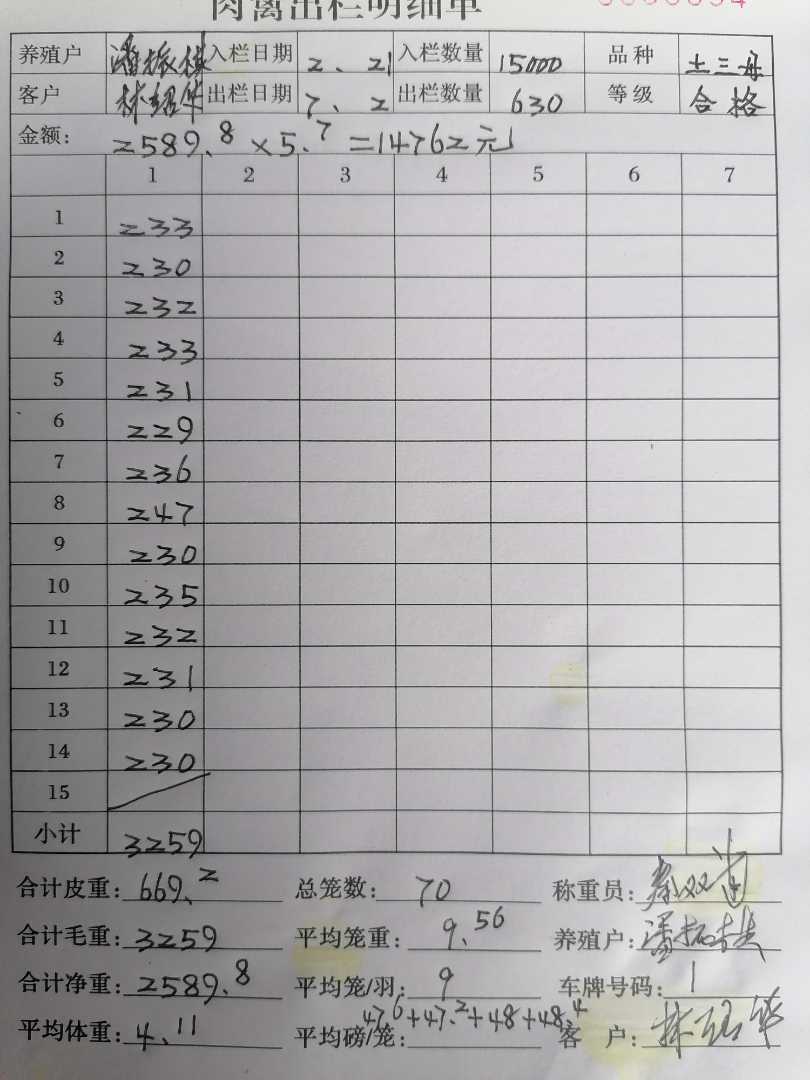 肉禽出栏明细单
养殖户 潘振棋 入栏日期 2、21 入栏数量 15000 品种 土三母
客户 林绍华 出栏日期 7、2 出栏数量 630 等级 合格
金额: 2589.8×5.7=14762元
1 2 3 4 5 6 7
1 233
2 230
3 232
4 233
5 231
6 229
7 236
8 247
9 230
10 235
11 232
12 231
13 230
14 230
15
小计 3259
合计皮重: 669.2 总笼数: 70 称重员:
合计毛重: 3259 平均笼重: 9.56 养殖户:
合计净重: 2589.8 平均笼/羽: 9 车牌号码: 1
平均体重: 4.11 平均磅/笼: 47.6+47.2+48+48.4 客 户: 林绍华